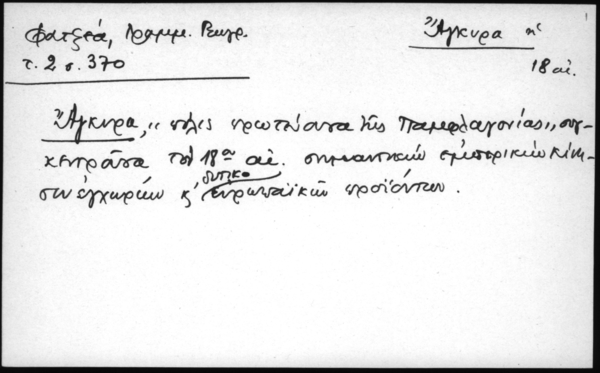 Φατζεά, Γραμμ. Γεωγρ.
τ. 2 σ. 370
Ἄγκυρα
18 αἰ.
Ἄγκυρα, „ πόλις πρωτεύουσα τῆς Παμφλαγονίας„, συγ-
κεντρώνει τον 18ον αἰ. σημαντικήν εμπορικήν κίνη-
σιν ἐγχωρίων κ' δυτικο
ευρωπαϊκών προϊόντων.